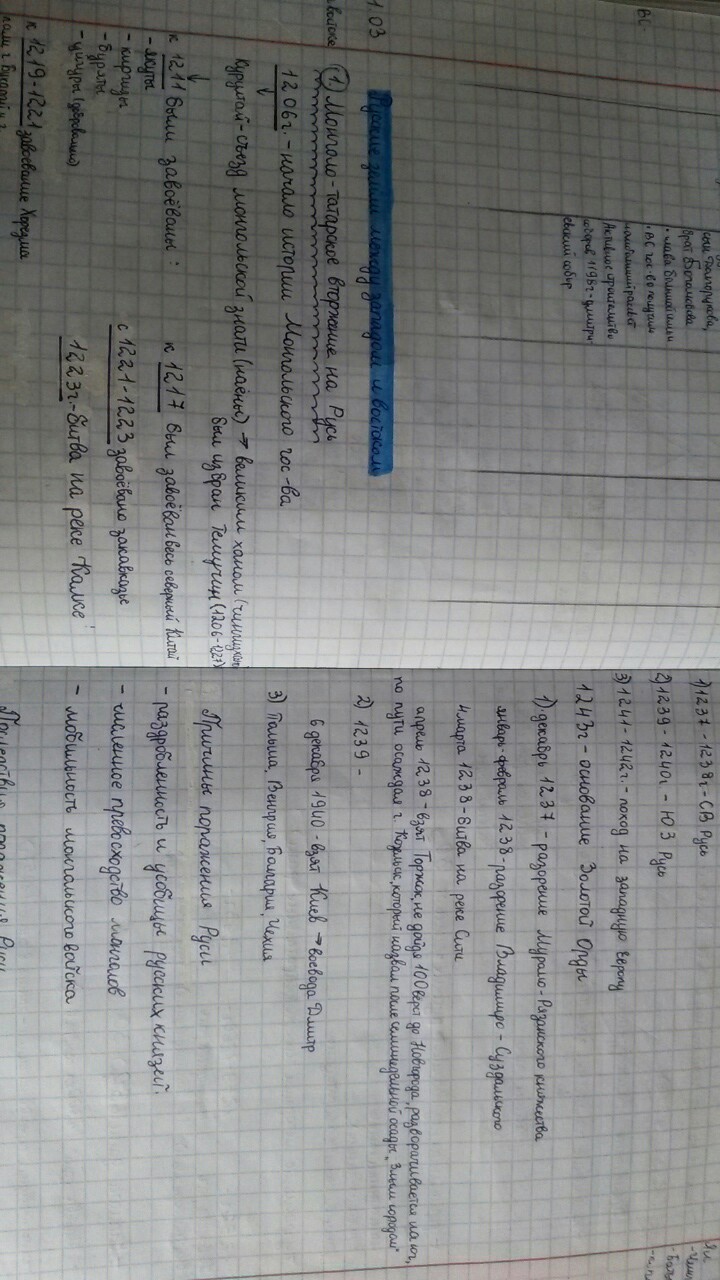 ВС
сын Долгорукова,
брат Боголюбского
1.03
Русские земли между западом и востоком
① Монголо-татарское вторжение на Русь
1206г. - начало истории Монгольского гос-ва
Курултай-съезд монгольской знати (наёны) → великим ханом
был избран Темучин (1206-1227)
к 1211 были завоёваны :
- якуты
- киргизы
- буряты
- уйгуры
к 1217 был завоёван весь северный Китай
с 1221-1223 завоёвано закавказье
к 1219-1221 завоевание Хорезма
1223г.-битва на реке Калке!
1) 1237 - 1238г - СВ Русь
2) 1239 - 1240г - ЮЗ Русь
3) 1241 - 1242г. - поход на западную Европу
1243г - основание Золотой Орды
1) декабрь 1237 - разорение Муромо-Рязанского княжества
январь-февраль 1238-разорение Владимиро - Суздальского
4 марта 1238-битва на реке Сити
апрель 1238 - взят Торжок, не дойдя 100 верст до Новгорода, разворачивается на юг,
по пути осаждая г. Козельск, который назвал после семинедельной осады „Злым городом"
2) 1239 -
6 декабря 1940 - взят Киев → воевода Дмитр
3) Польша, Венгрия, Болгария, Чехия
Причины поражения Руси
- раздробленность и усобицы русских князей.
- численное превосходство монголов
- мобильность монгольского войска
Последствия поражения Руси